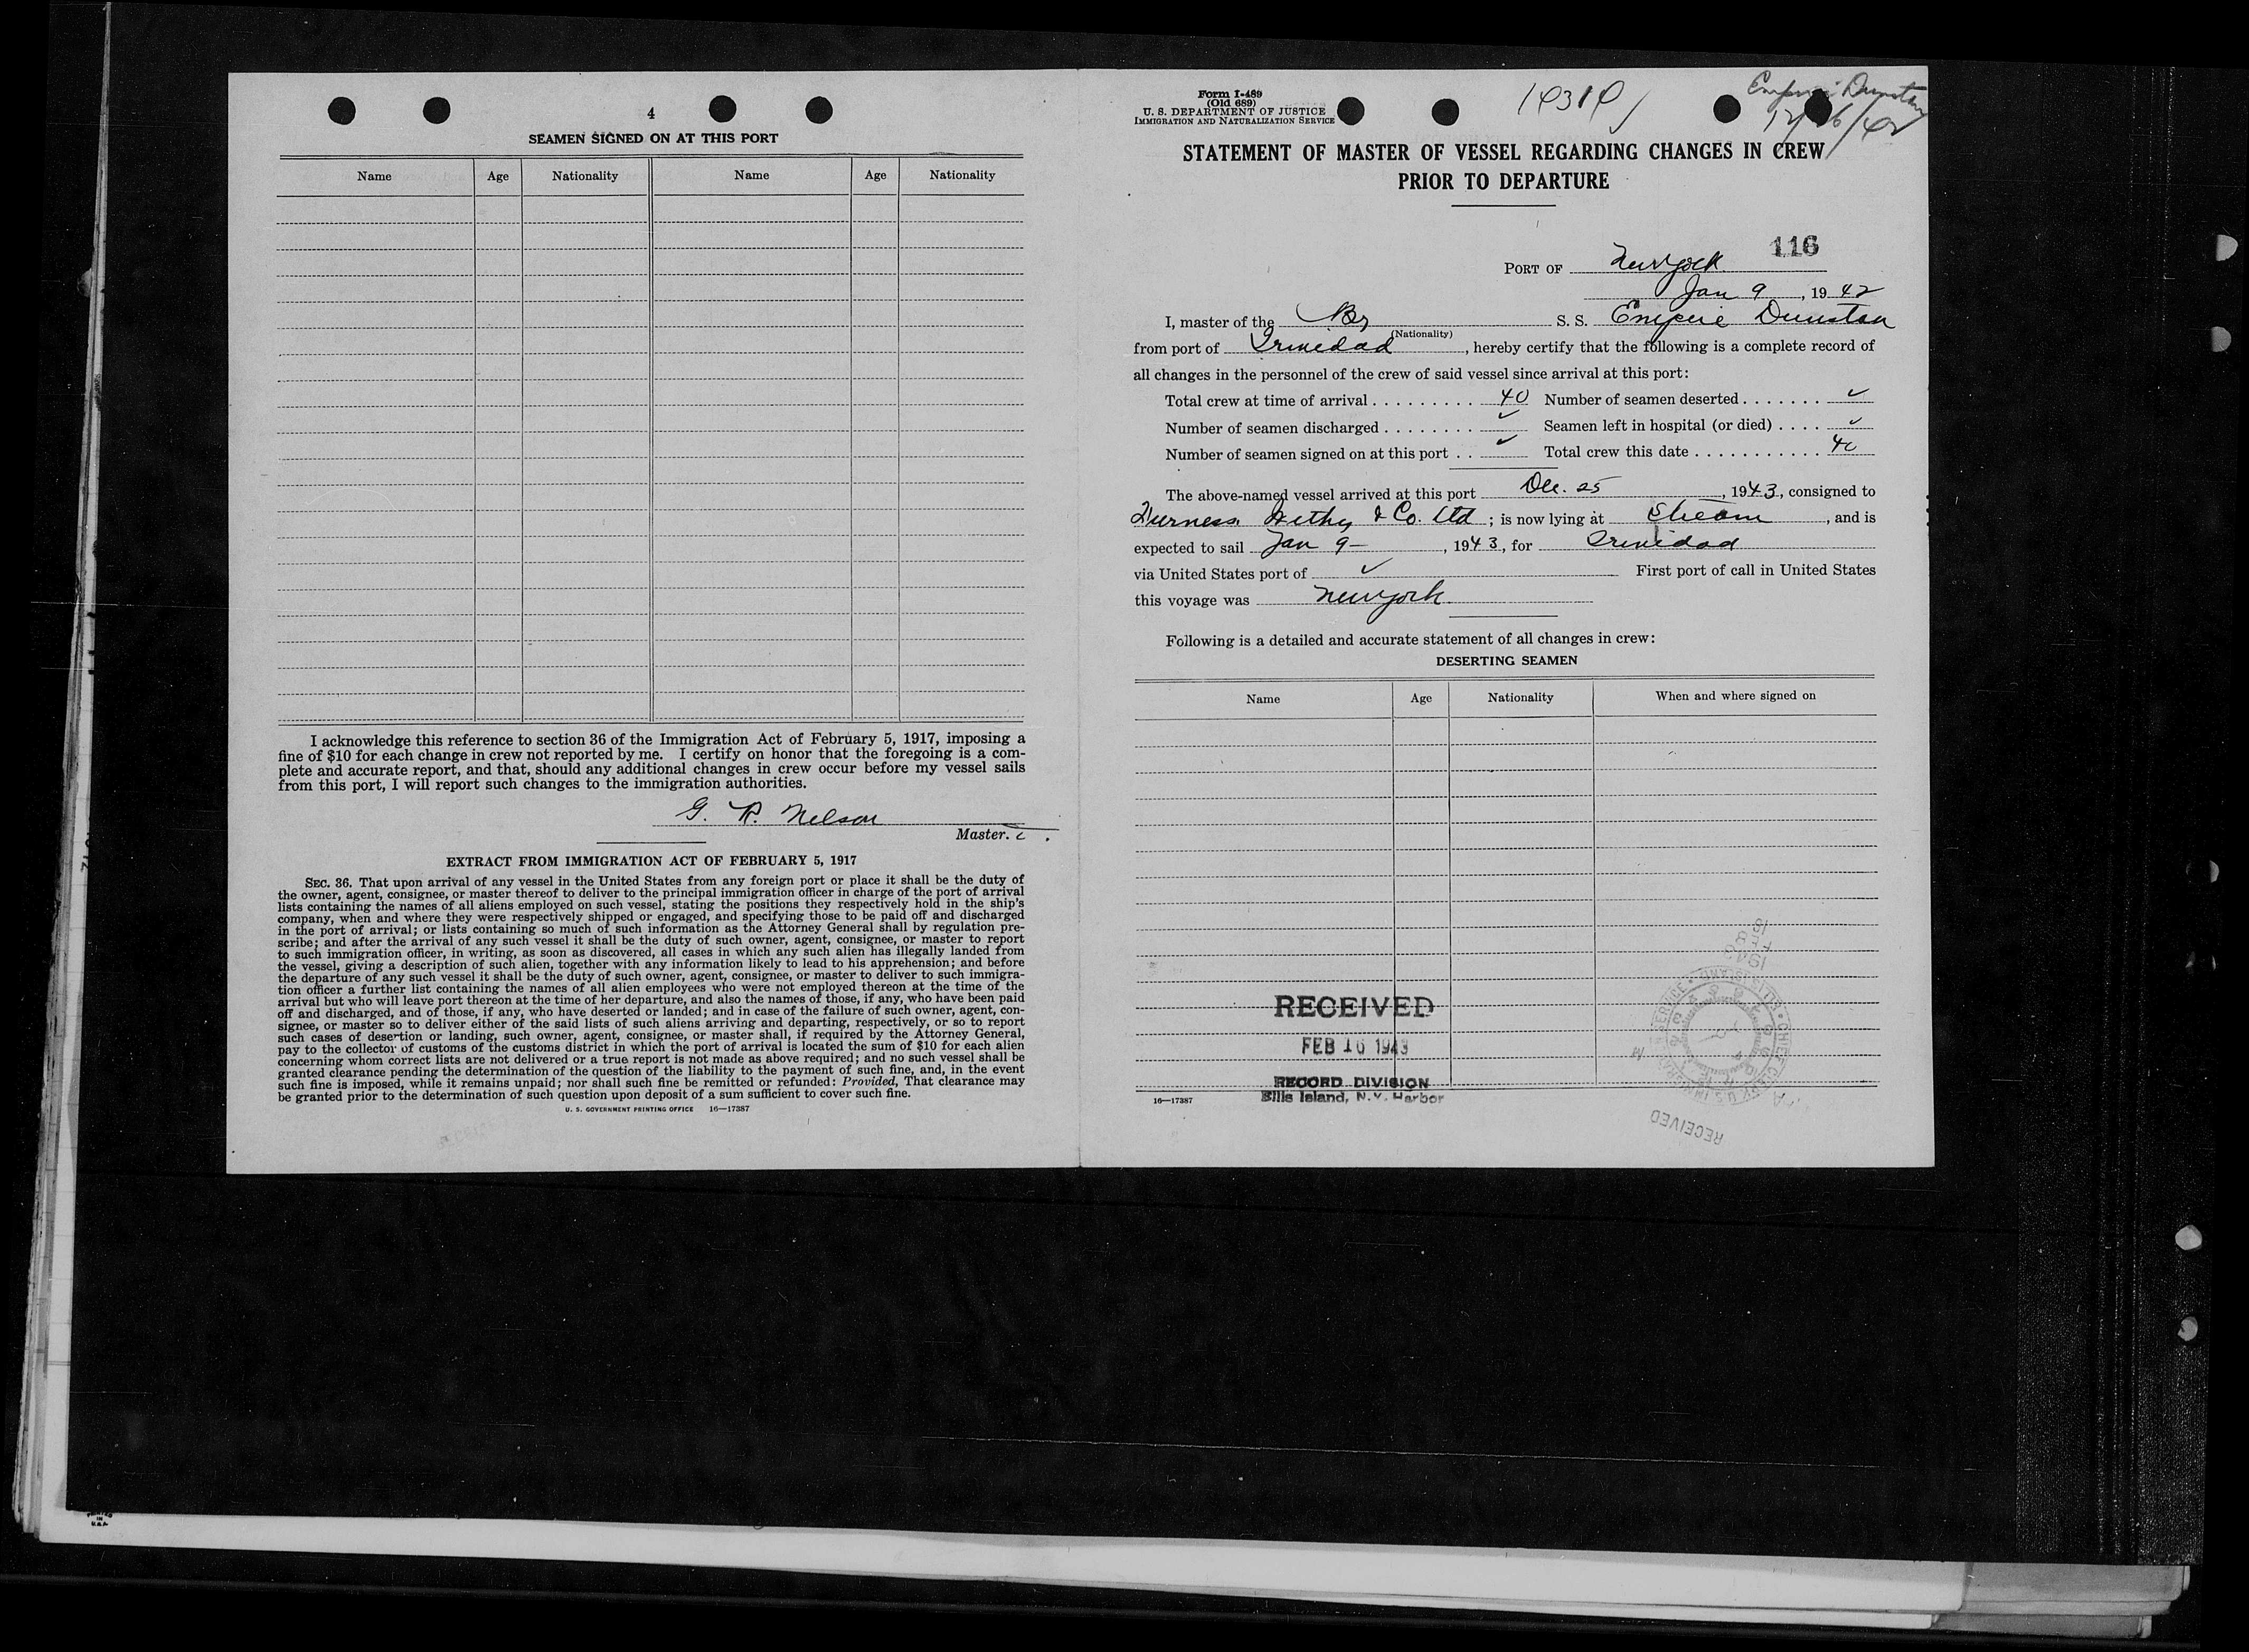 4
SEAMEN SIGNED ON AT THIS PORT
Name Age Nationality Name Age Nationality
I acknowledge this reference to section 36 of the Immigration Act of February 5, 1917, imposing a
fine of $10 for each change in crew not reported by me. I certify on honor that the foregoing is a com-
plete and accurate report, and that, should any additional changes in crew occur before my vessel sails
from this port, I will report such changes to the immigration authorities.
G. R. Nelson
Master.
EXTRACT FROM IMMIGRATION ACT OF FEBRUARY 5, 1917
SEC. 36. That upon arrival of any vessel in the United States from any foreign port or place it shall be the duty of
the owner, agent, consignee, or master thereof to deliver to the principal immigration officer in charge of the port of arrival
lists containing the names of all aliens employed on such vessel, stating the positions they respectively hold in the ship's
company, when and where they were respectively shipped or engaged, and specifying those to be paid off and discharged
in the port of arrival; or lists containing so much of such information as the Attorney General shall by regulation pre-
scribe; and after the arrival of any such vessel it shall be the duty of such owner, agent, consignee, or master to report
to such immigration officer, in writing, as soon as discovered, all cases in which any such alien has illegally landed from
the vessel, giving a description of such alien, together with any information likely to lead to his apprehension; and before
the departure of any such vessel it shall be the duty of such owner, agent, consignee, or master to deliver to such immigra-
tion officer a further list containing the names of all alien employees who were not employed thereon at the time of the
arrival but who will leave port thereon at the time of her departure, and also the names of those, if any, who have been paid
off and discharged, and of those, if any, who have deserted or landed; and in case of the failure of such owner, agent, con-
signee, or master so to deliver either of the said lists of such aliens arriving and departing, respectively, or so to report
such cases of desertion or landing, such owner, agent, consignee, or master shall, if required by the Attorney General,
pay to the collector of customs of the customs district in which the port of arrival is located the sum of $10 for each alien
concerning whom correct lists are not delivered or a true report is not made as above required; and no such vessel shall be
granted clearance pending the determination of the question of the liability to the payment of such fine, and, in the event
such fine is imposed, while it remains unpaid; nor shall such fine be remitted or refunded: Provided, That clearance may
be granted prior to the determination of such question upon deposit of a sum sufficient to cover such fine.
U. S. GOVERNMENT PRINTING OFFICE 16—17387
Form I-489
(Old 689)
U. S. DEPARTMENT OF JUSTICE
IMMIGRATION AND NATURALIZATION SERVICE
Empire Dunstan
12/26/42
STATEMENT OF MASTER OF VESSEL REGARDING CHANGES IN CREW
PRIOR TO DEPARTURE
116
PORT OF New York
Jan 9, 1942
I, master of the Br S. S. Empire Dunstan
(Nationality)
from port of Trinidad, hereby certify that the following is a complete record of
all changes in the personnel of the crew of said vessel since arrival at this port:
Total crew at time of arrival . . . . . . . . . 40 Number of seamen deserted . . . . . . . ✓
Number of seamen discharged . . . . . . . . ✓ Seamen left in hospital (or died) . . . . ✓
Number of seamen signed on at this port . . ✓ Total crew this date . . . . . . . . . . . 40
The above-named vessel arrived at this port Dec. 25, 1943, consigned to
Furness Withy & Co. Ltd; is now lying at Stream, and is
expected to sail Jan 9-, 1943, for Trinidad
via United States port of ✓ First port of call in United States
this voyage was New York
Following is a detailed and accurate statement of all changes in crew:
DESERTING SEAMEN
Name Age Nationality When and where signed on
RECEIVED
FEB 16 1943
RECORD DIVISION
Ellis Island, N.Y. Harbor
16—17387
RECEIVED